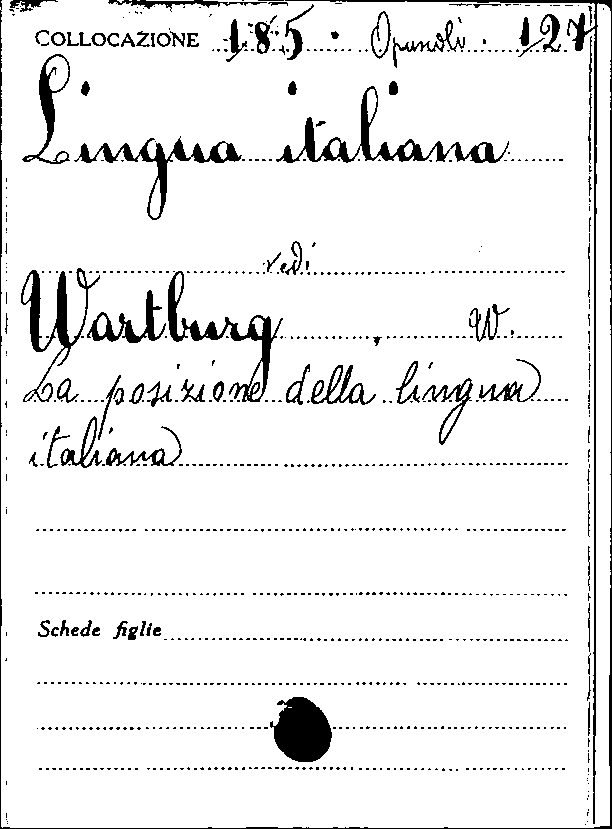 COLLOCAZIONE 185. Opuscoli. 127
Lingua italiana
vedi
Wartburg, W.
La posizione della lingua
italiana
Schede figlie